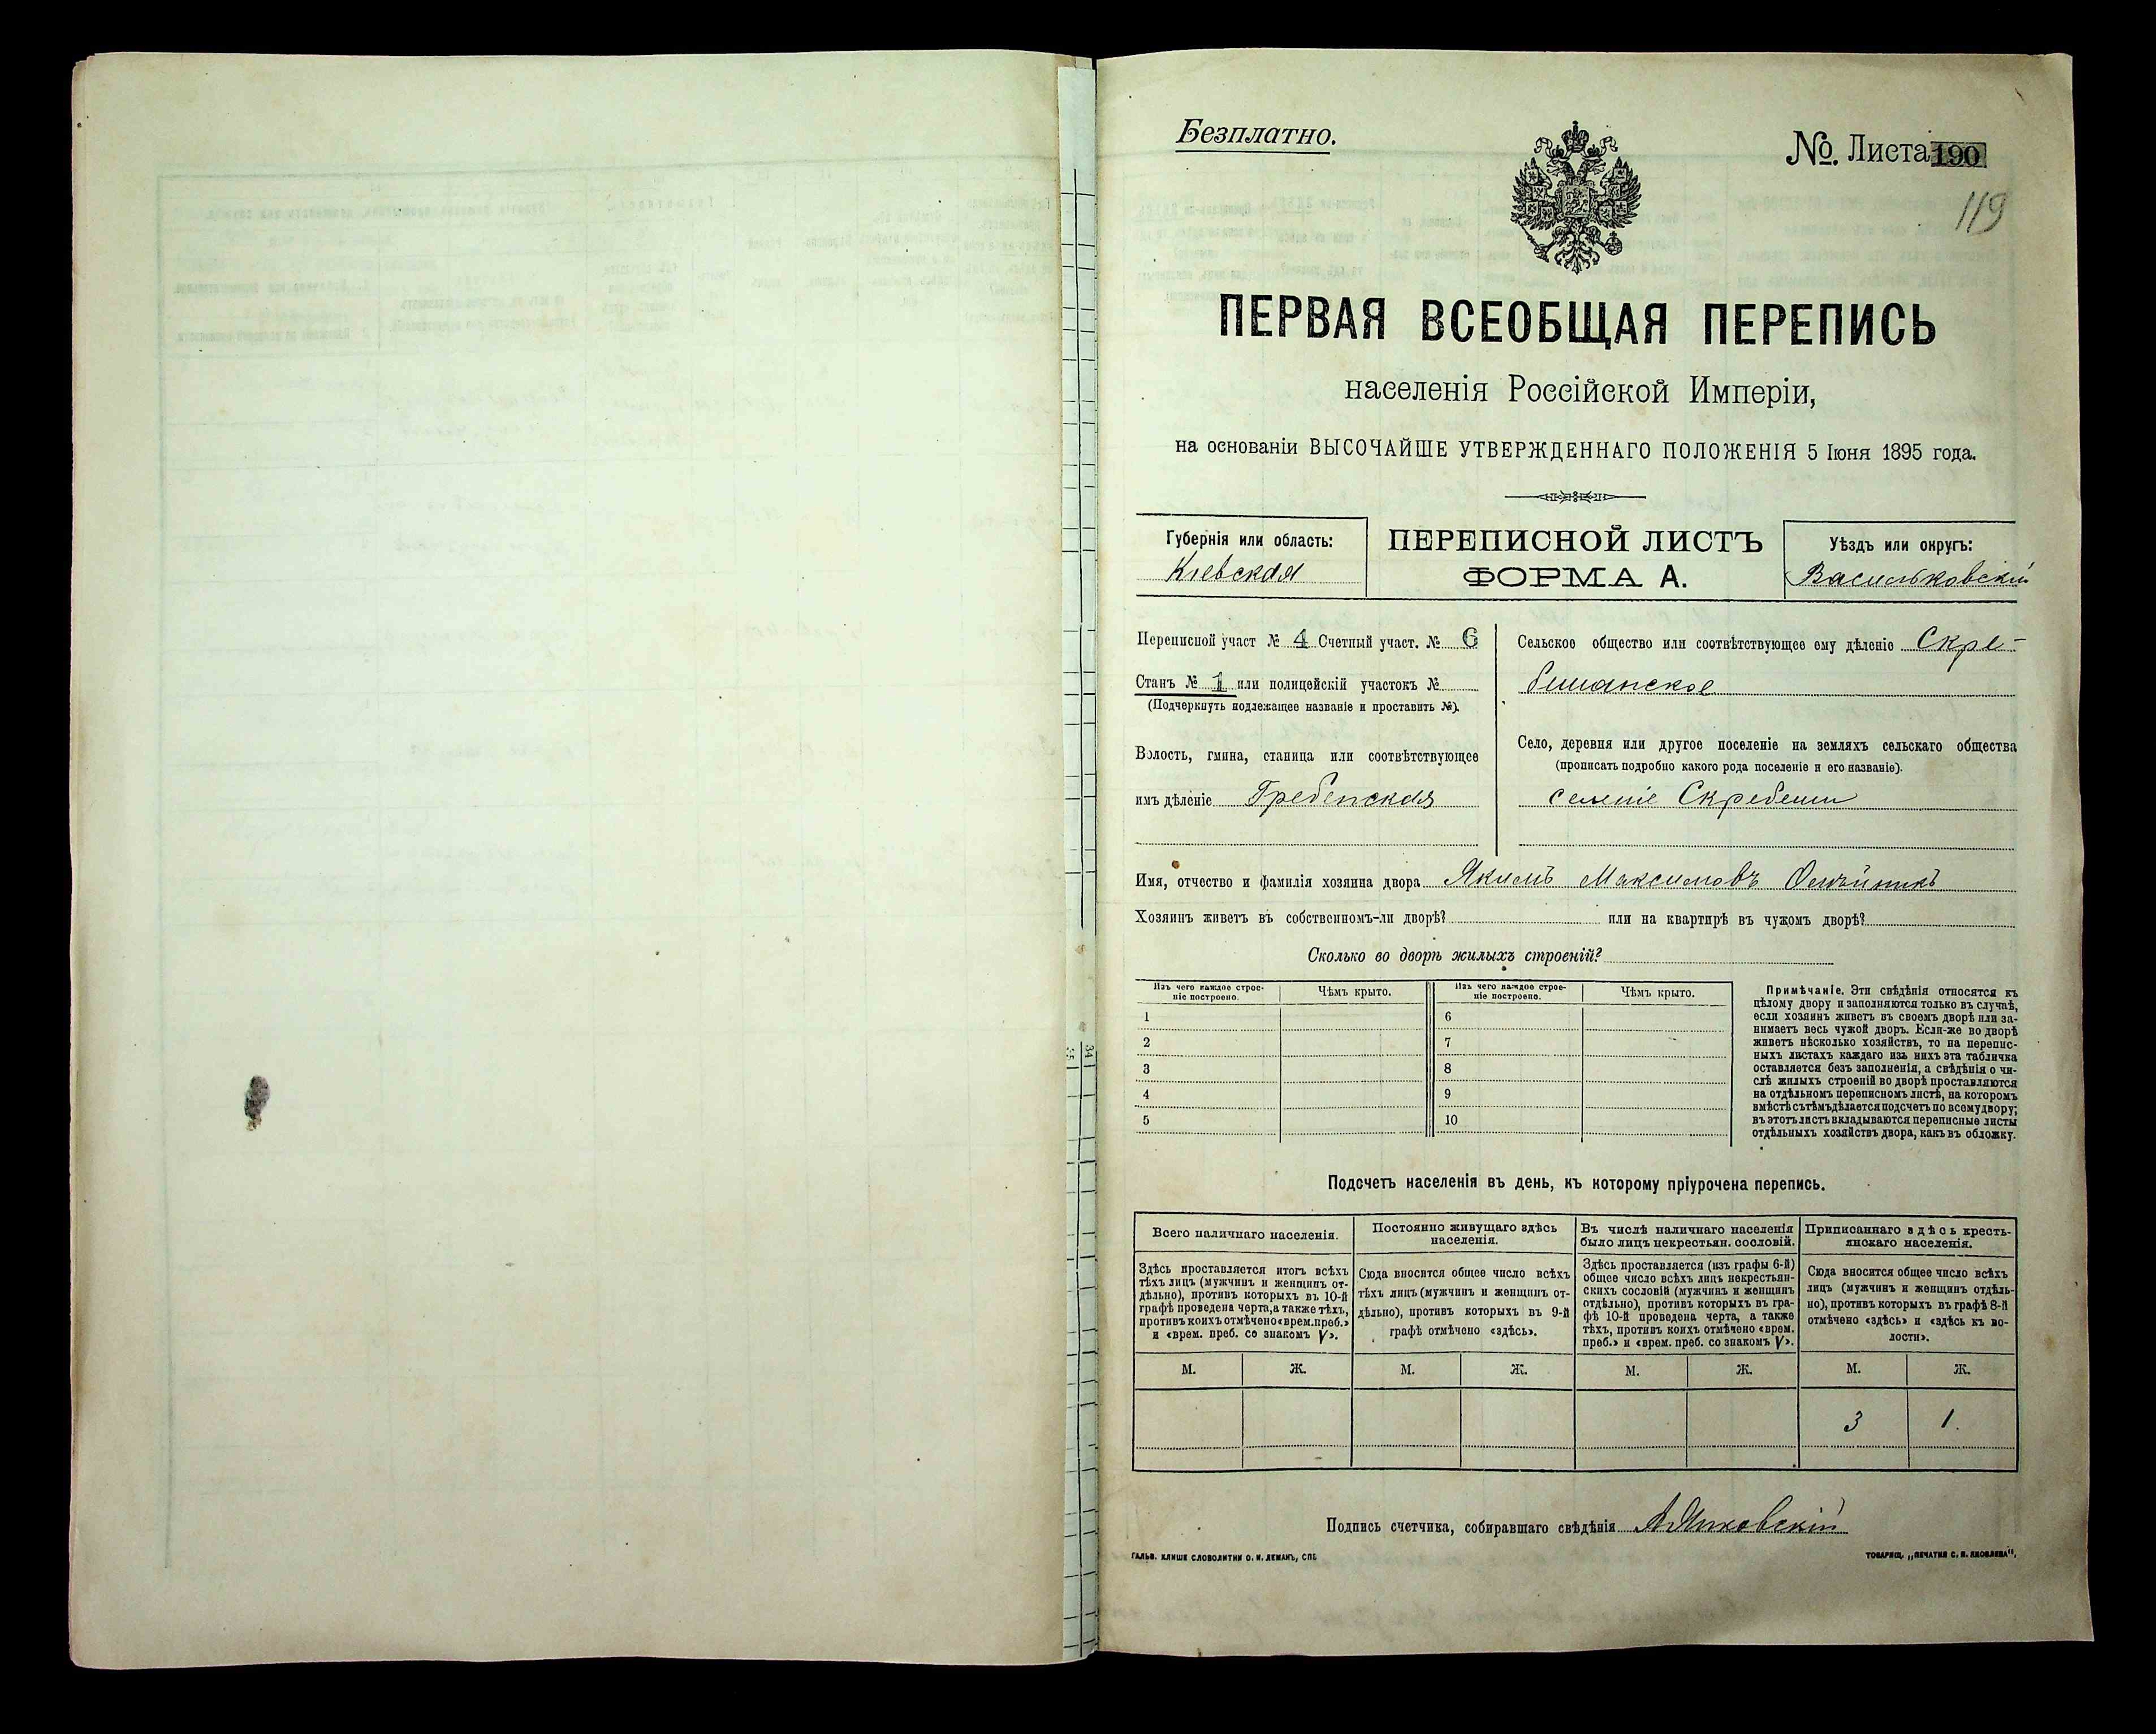 Безплатно.
№. Листа 190
119
ПЕРВАЯ ВСЕОБЩАЯ ПЕРЕПИСЬ
населенія Россійской Имперіи,
на основаніи ВЫСОЧАЙШЕ УТВЕРЖДЕННАГО ПОЛОЖЕНІЯ 5 Іюня 1895 года.
Губернія или область:
Кіевская
ПЕРЕПИСНОЙ ЛИСТЪ
ФОРМА А.
Уѣздъ или округъ:
Васильковскій
Переписной участ № 4 Счетный участ. № 6
Станъ № 1 или полицейскій участокъ №
(Подчеркнуть подлежащее названіе и проставить №).
Волость, гмина, станица или соотвѣтствующее
имъ дѣленіе Гребенская
Сельское общество или соотвѣтствующее ему дѣленіе Скре-
бишанское
Село, деревня или другое поселеніе на земляхъ сельскаго общества
(прописать подробно какого рода поселеніе и его названіе).
селеніе Скребеши
Имя, отчество и фамилія хозяина двора Якимъ Максимовъ Олейникъ
Хозяинъ живетъ въ собственномъ-ли дворѣ? или на квартирѣ въ чужомъ дворѣ?
Сколько во дворѣ жилыхъ строеній?
Изъ чего каждое строе-
ніе построено.
Чѣмъ крыто.
Изъ чего каждое строе-
ніе построено.
Чѣмъ крыто.
1 6
2 7
3 8
4 9
5 10
Примѣчаніе. Эти свѣдѣнія относятся къ
цѣлому двору и заполняются только въ случаѣ,
если хозяинъ живетъ въ своемъ дворѣ или за-
нимаетъ весь чужой дворъ. Если-же во дворѣ
живетъ нѣсколько хозяйствъ, то на перепис-
ныхъ листахъ каждаго изъ нихъ эта табличка
оставляется безъ заполненія, а свѣдѣнія о чи-
слѣ жилыхъ строеній во дворѣ проставляются
на отдѣльномъ переписномъ листѣ, на которомъ
вмѣстѣ съ тѣмъ дѣлается подсчетъ по всему двору;
въ этотъ листъ вкладываются переписные листы
отдѣльныхъ хозяйствъ двора, какъ въ обложку.
Подсчетъ населенія въ день, къ которому пріурочена перепись.
Всего наличнаго населенія.
Здѣсь проставляется итогъ всѣхъ
тѣхъ лицъ (мужчинъ и женщинъ от-
дѣльно), противъ которыхъ въ 10-й
графѣ проведена черта, а также тѣхъ,
противъ коихъ отмѣчено «врем. преб.»
и «врем. преб. со знакомъ V».
Постоянно живущаго здѣсь
населенія.
Сюда вносится общее число всѣхъ
тѣхъ лицъ (мужчинъ и женщинъ от-
дѣльно), противъ которыхъ въ 9-й
графѣ отмѣчено «здѣсь».
Въ числѣ наличнаго населенія
было лицъ некрестьян. сословій.
Здѣсь проставляется (изъ графы 6-й)
общее число всѣхъ лицъ некрестьян-
скихъ сословій (мужчинъ и женщинъ
отдѣльно), противъ которыхъ въ гра-
фѣ 10-й проведена черта, а также
тѣхъ, противъ коихъ отмѣчено «врем.
преб.» и «врем. преб. со знакомъ V».
Приписаннаго здѣсь кресть-
янскаго населенія.
Сюда вносится общее число всѣхъ
лицъ (мужчинъ и женщинъ отдѣль-
но), противъ которыхъ въ графѣ 8-й
отмѣчено «здѣсь» и «здѣсь къ во-
лости».
М. Ж. М. Ж. М. Ж. М. Ж.
3 1.
Подпись счетчика, собиравшаго свѣдѣнія
ГАЛЬВ. КЛИШЕ СЛОВОЛИТНИ О. И. ЛЕМАНЪ, СПБ
ТОВАРИЩ. „ПЕЧАТНЯ С. П. ЯКОВЛЕВА",